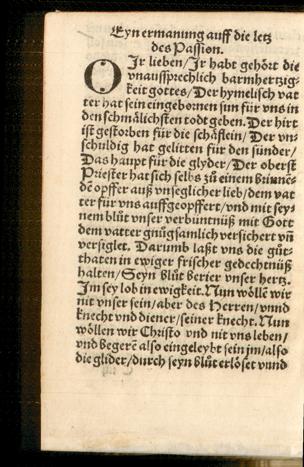 Eyn ermanung auff die letz
des Passion.
O Jr lieben/Jr habt gehört die
vnaussprechlich barmhertzig-
keit gottes/Der hymelisch vat
ter hat sein eingebornen sun für vns in
den schmälichsten todt geben. Der hirt
ist gestorben für die schäflein/Der vn-
schuldig hat gelitten für den sünder/
Das haupt für die glyder/Der oberst
Priester hat sich selbs zů einem brinnē-
dē opffer auß vnseglicher lieb/dem vat
ter für vns auffgeopffert/vnd mit sey-
nem blůt vnser verbüntnüß mit Gott
dem vatter gnůgsamlich versichert vñ
versiglet. Darumb laßt vns die güt-
thaten in ewiger frischer gedechtnüß
halten/Seyn blůt berier vnser hertz.
Jm sey lob in ewigkeit. Nun wölle wir
nit vnser sein/aber des Herren/vnnd
knecht vnd diener/seiner knecht. Nun
wöllen wir Christo vnd nit vns leben/
vnd begerē also eingeleybt sein jm/also
die glider/durch seyn blůt erlöset vnnd